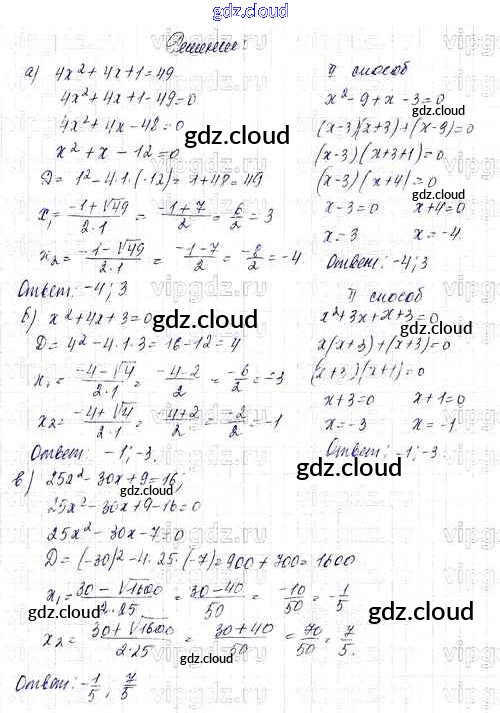 gdz.cloud
Решение:
а) 4x² + 4x + 1 = 49
4x² + 4x + 1 - 49 = 0
4x² + 4x - 48 = 0
x² + x - 12 = 0
D = 1² - 4·1·(-12) = 1 + 48 = 49
x₁ = (-1 + √49)/(2·1) = (-1 + 7)/2 = 6/2 = 3
x₂ = (-1 - √49)/(2·1) = (-1 - 7)/2 = -8/2 = -4
Ответ: -4; 3
II способ
x² - 9 + x - 3 = 0
(x - 3)(x + 3) + (x - 3) = 0
(x - 3)(x + 3 + 1) = 0
(x - 3)(x + 4) = 0
x - 3 = 0 x + 4 = 0
x = 3 x = -4.
Ответ: -4; 3
б) x² + 4x + 3 = 0
D = 4² - 4·1·3 = 16 - 12 = 4
x₁ = (-4 - √4)/(2·1) = (-4 - 2)/2 = -6/2 = -3
x₂ = (-4 + √4)/(2·1) = (-4 + 2)/2 = -2/2 = -1
Ответ: -1; -3.
II способ
x² + 3x + x + 3 = 0
x(x + 3) + (x + 3) = 0
(x + 3)(x + 1) = 0
x + 3 = 0 x + 1 = 0
x = -3 x = -1
Ответ: -1; -3.
в) 25x² - 30x + 9 = 16;
25x² - 30x + 9 - 16 = 0
25x² - 30x - 7 = 0
D = (-30)² - 4·25·(-7) = 900 + 700 = 1600
x₁ = (30 - √1600)/(2·25) = (30 - 40)/50 = -10/50 = -1/5
x₂ = (30 + √1600)/(2·25) = (30 + 40)/50 = 70/50 = 7/5.
Ответ: -1/5; 7/5